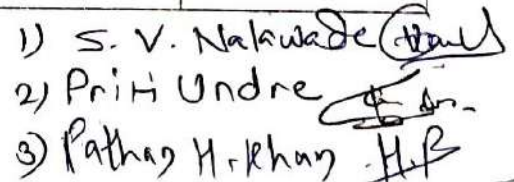 1) S. V. Nalawade
2) Priti Undre
3) Pathan H. Khan H.P